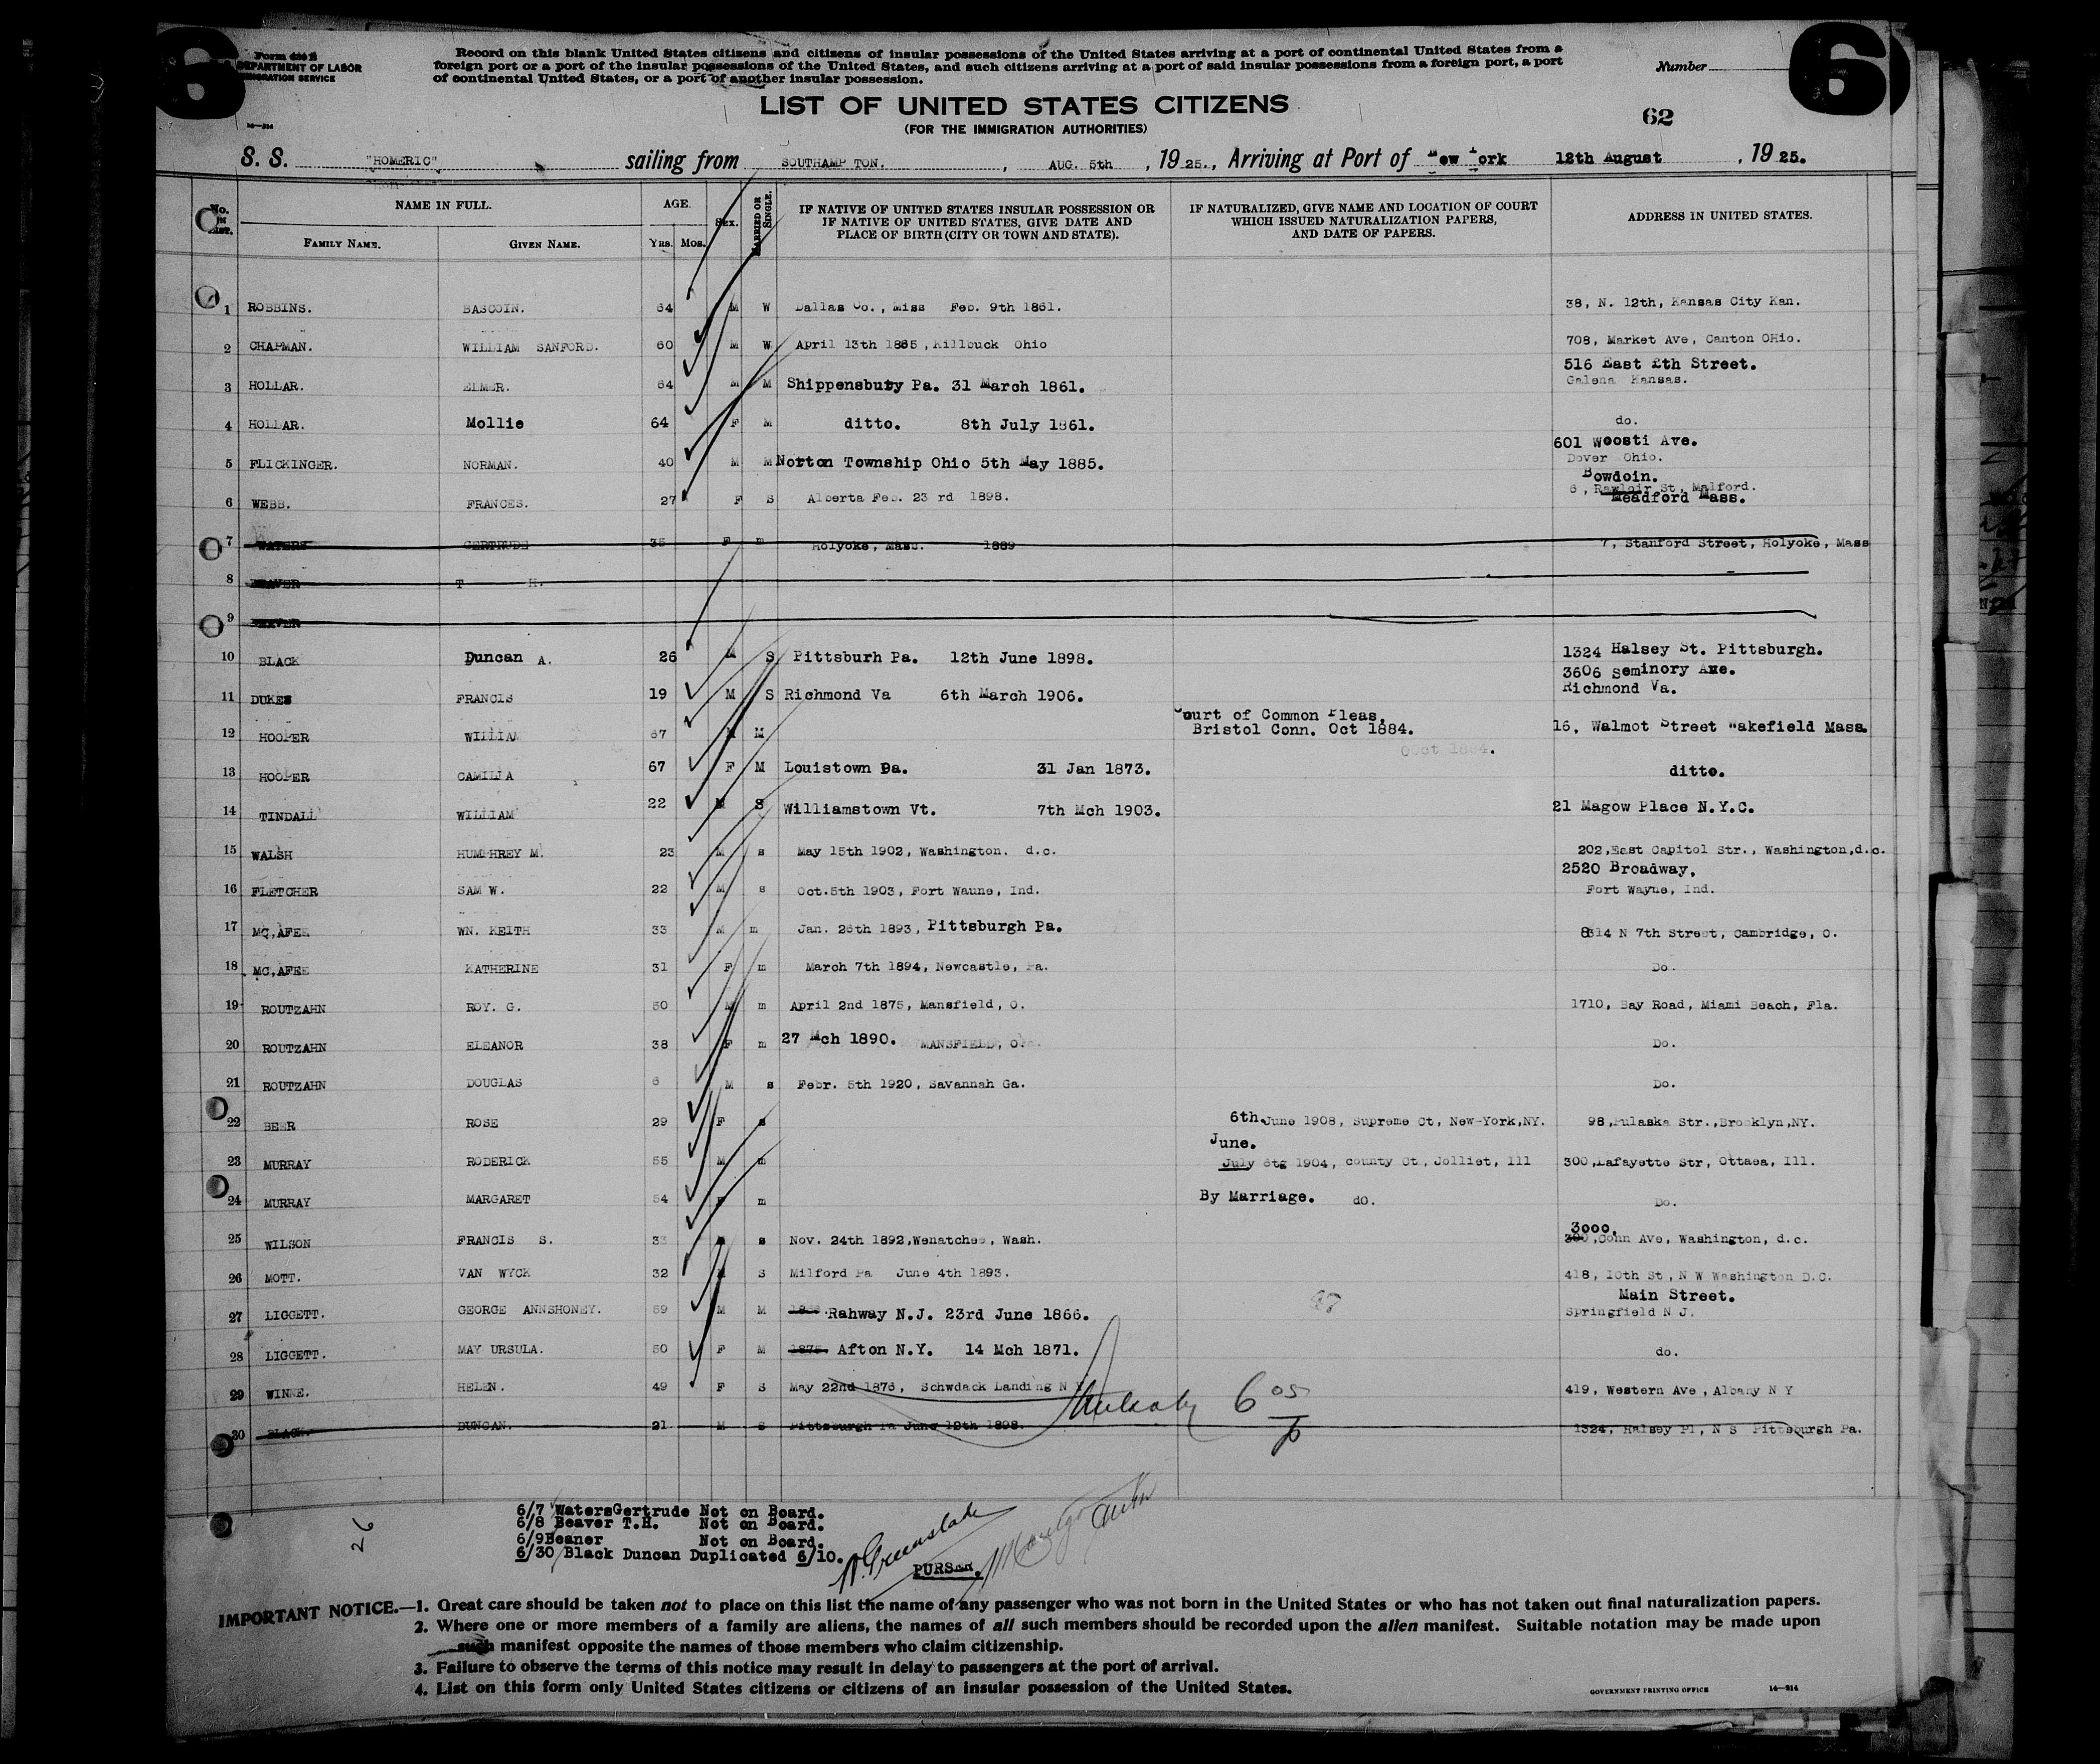 6
Form 630 B
DEPARTMENT OF LABOR
IMMIGRATION SERVICE
Record on this blank United States citizens and citizens of insular possessions of the United States arriving at a port of continental United States from a
foreign port or a port of the insular possessions of the United States, and such citizens arriving at a port of said insular possessions from a foreign port, a port
of continental United States, or a port of another insular possession.
Number
6
14—214
LIST OF UNITED STATES CITIZENS
(FOR THE IMMIGRATION AUTHORITIES)
62
S. S. "HOMERIC" sailing from SOUTHAMPTON. , AUG. 5th , 1925., Arriving at Port of New York 12th August , 1925.
No. IN LIST. NAME IN FULL. AGE. SEX. MARRIED OR SINGLE. IF NATIVE OF UNITED STATES INSULAR POSSESSION OR IF NATIVE OF UNITED STATES, GIVE DATE AND PLACE OF BIRTH (CITY OR TOWN AND STATE). IF NATURALIZED, GIVE NAME AND LOCATION OF COURT WHICH ISSUED NATURALIZATION PAPERS, AND DATE OF PAPERS. ADDRESS IN UNITED STATES.
FAMILY NAME. GIVEN NAME. YRS. MOS.
1 ROBBINS. BASCOIN. 64 M W Dallas Co., Miss Feb. 9th 1861. 38, N. 12th, Kansas City Kan.
2 CHAPMAN. WILLIAM SANFORD. 60 M W April 13th 1865, Killbuck Ohio 708, Market Ave, Canton OHio.
516 East Eth Street.
3 HOLLAR. ELMER. 64 M M Shippensbury Pa. 31 March 1861. Galena Kansas.
4 HOLLAR. Mollie 64 F M ditto. 8th July 1861. do.
601 Woosti Ave.
5 FLICKINGER. NORMAN. 40 M M Norton Township Ohio 5th May 1885. Dover Ohio.
Bowdoin.
6 WEBB. FRANCES. 27 F S Alberta Feb. 23 rd 1898. 6, St, Malford.
Meadford Mass.
7 WATERS GERTRUDE 35 F m Holyoke, Mass. 1889 7, Stanford Street, Holyoke, Mass
8 BEAVER T H.
9 BEAVER
10 BLACK Duncan A. 26 M S Pittsburh Pa. 12th June 1898. 1324 Halsey St. Pittsburgh.
3606 Seminory Axe.
11 DUKES FRANCIS 19 M S Richmond Va 6th March 1906. Richmond Va.
Court of Common Pleas,
12 HOOPER WILLIAM 67 M M Bristol Conn. Oct 1884. 16, Walmot Street Wakefield Mass.
13 HOOPER CAMILIA 67 F M Louistown Pa. 31 Jan 1873. ditto.
14 TINDALL WILLIAM 22 M S Williamstown Vt. 7th Mch 1903. 21 Magow Place N.Y.C.
15 WALSH HUMPHREY M. 23 M s May 15th 1902, Washington. d.c. 202,East Capitol Str., Washington,d.c.
2520 Broadway,
16 FLETCHER SAM W. 22 M s Oct.5th 1903, Fort Waune, Ind. Fort Wayne, Ind.
17 MC,AFEE WN. KEITH 33 M m Jan. 26th 1893, Pittsburgh Pa. 8314 N 7th Street, Cambridge, O.
18 MC,AFEE KATHERINE 31 F m March 7th 1894, Newcastle, Pa. Do.
19 ROUTZAHN ROY. G. 50 M m April 2nd 1875, Mansfield, O. 1710, Bay Road, Miami Beach, Fla.
20 ROUTZAHN ELEANOR 38 F m 27 Mch 1890. MANSFIELD, O. Do.
21 ROUTZAHN DOUGLAS 6 M s Febr. 5th 1920, Savannah Ga. Do.
22 BEER ROSE 29 F s 6th June 1908, Supreme Ct, New-York,NY. 98,Pulaska Str.,Brooklyn,NY.
June.
23 MURRAY RODERICK 55 M m July 6tg 1904, county Ct, Jolliet, Ill 300,Lafayette Str, Ottawa, Ill.
24 MURRAY MARGARET 54 F m By Marriage. do. Do.
3000,
25 WILSON FRANCIS S. 33 M s Nov. 24th 1892,Wenatchee, Wash. 300,Conn Ave, Washington, d.c.
26 MOTT. VAN WYCK 32 M S Milford Pa June 4th 1893. 418, 10th St, N W Washington D.C.
Main Street.
27 LIGGETT. GEORGE ANNSHONEY. 59 M M 1866 Rahway N.J. 23rd June 1866. 27 Springfield N J.
28 LIGGETT. MAY URSULA. 50 F M 1875. Afton N.Y. 14 Mch 1871. do.
29 WINNE. HELEN. 49 F S May 22nd 1876, Schwdack Landing N Y 6 05 419, Western Ave, Albany N Y
30 BLACK. DUNCAN. 21 M S Pittsburgh Pa June 12th 1898. 1324, Halsey Pl, N S Pittsburgh Pa.
26
6/7 WatersGertrude Not on Board.
6/8 Beaver T.H. Not on Board.
6/9Beaner Not on Board.
6/30 Black Duncan Duplicated 6/10.
PURSER.
IMPORTANT NOTICE.—1. Great care should be taken not to place on this list the name of any passenger who was not born in the United States or who has not taken out final naturalization papers.
2. Where one or more members of a family are aliens, the names of all such members should be recorded upon the alien manifest. Suitable notation may be made upon
such manifest opposite the names of those members who claim citizenship.
3. Failure to observe the terms of this notice may result in delay to passengers at the port of arrival.
4. List on this form only United States citizens or citizens of an insular possession of the United States.
GOVERNMENT PRINTING OFFICE 14—214